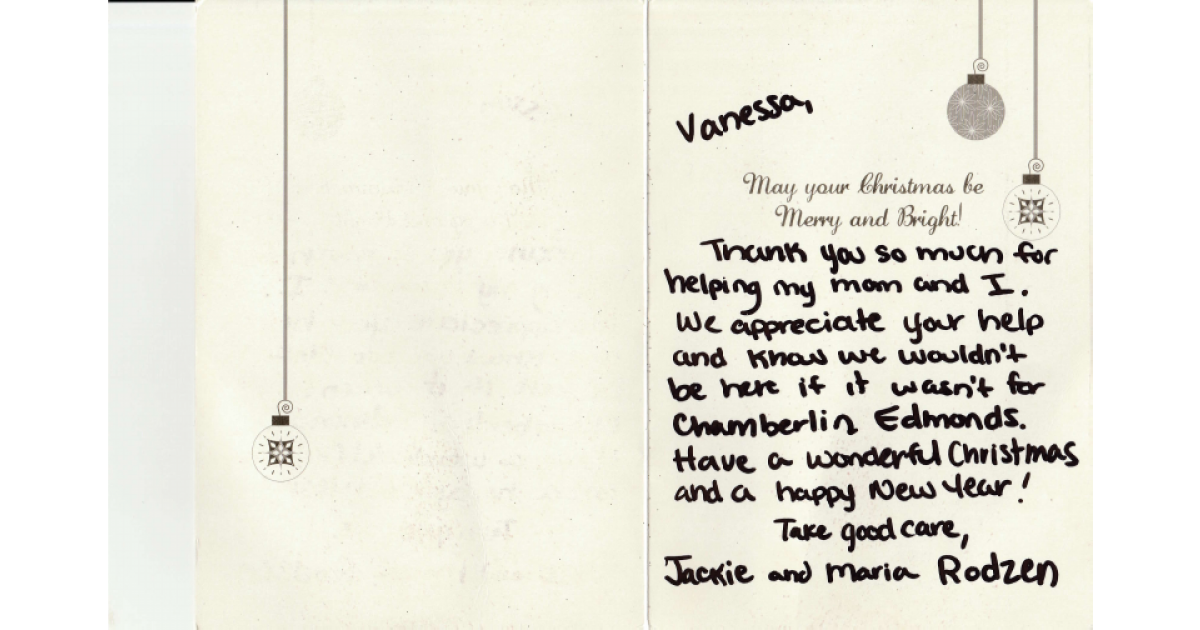 Vanessa,
May your Christmas be
Merry and Bright!
Thank you so much for
helping my mom and I.
We appreciate your help
and know we wouldn't
be here if it wasn't for
Chamberlin Edmonds.
Have a wonderful Christmas
and a happy New Year!
Take good care,
Jackie and Maria Rodzen